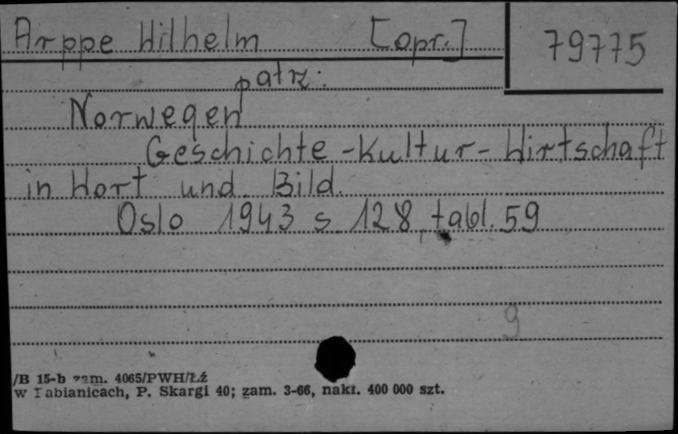 Arppe Wilhelm [opr.] 79775
patrz:
Norwegen
Geschichte - Kultur - Wirtschaft
in Wort und Bild.
Oslo 1943 s. 128, tabl. 59
9
/B 15-b zam. 4065/PWH/Łź
w Pabianicach, P. Skargi 40; zam. 3-66, nakł. 400 000 szt.